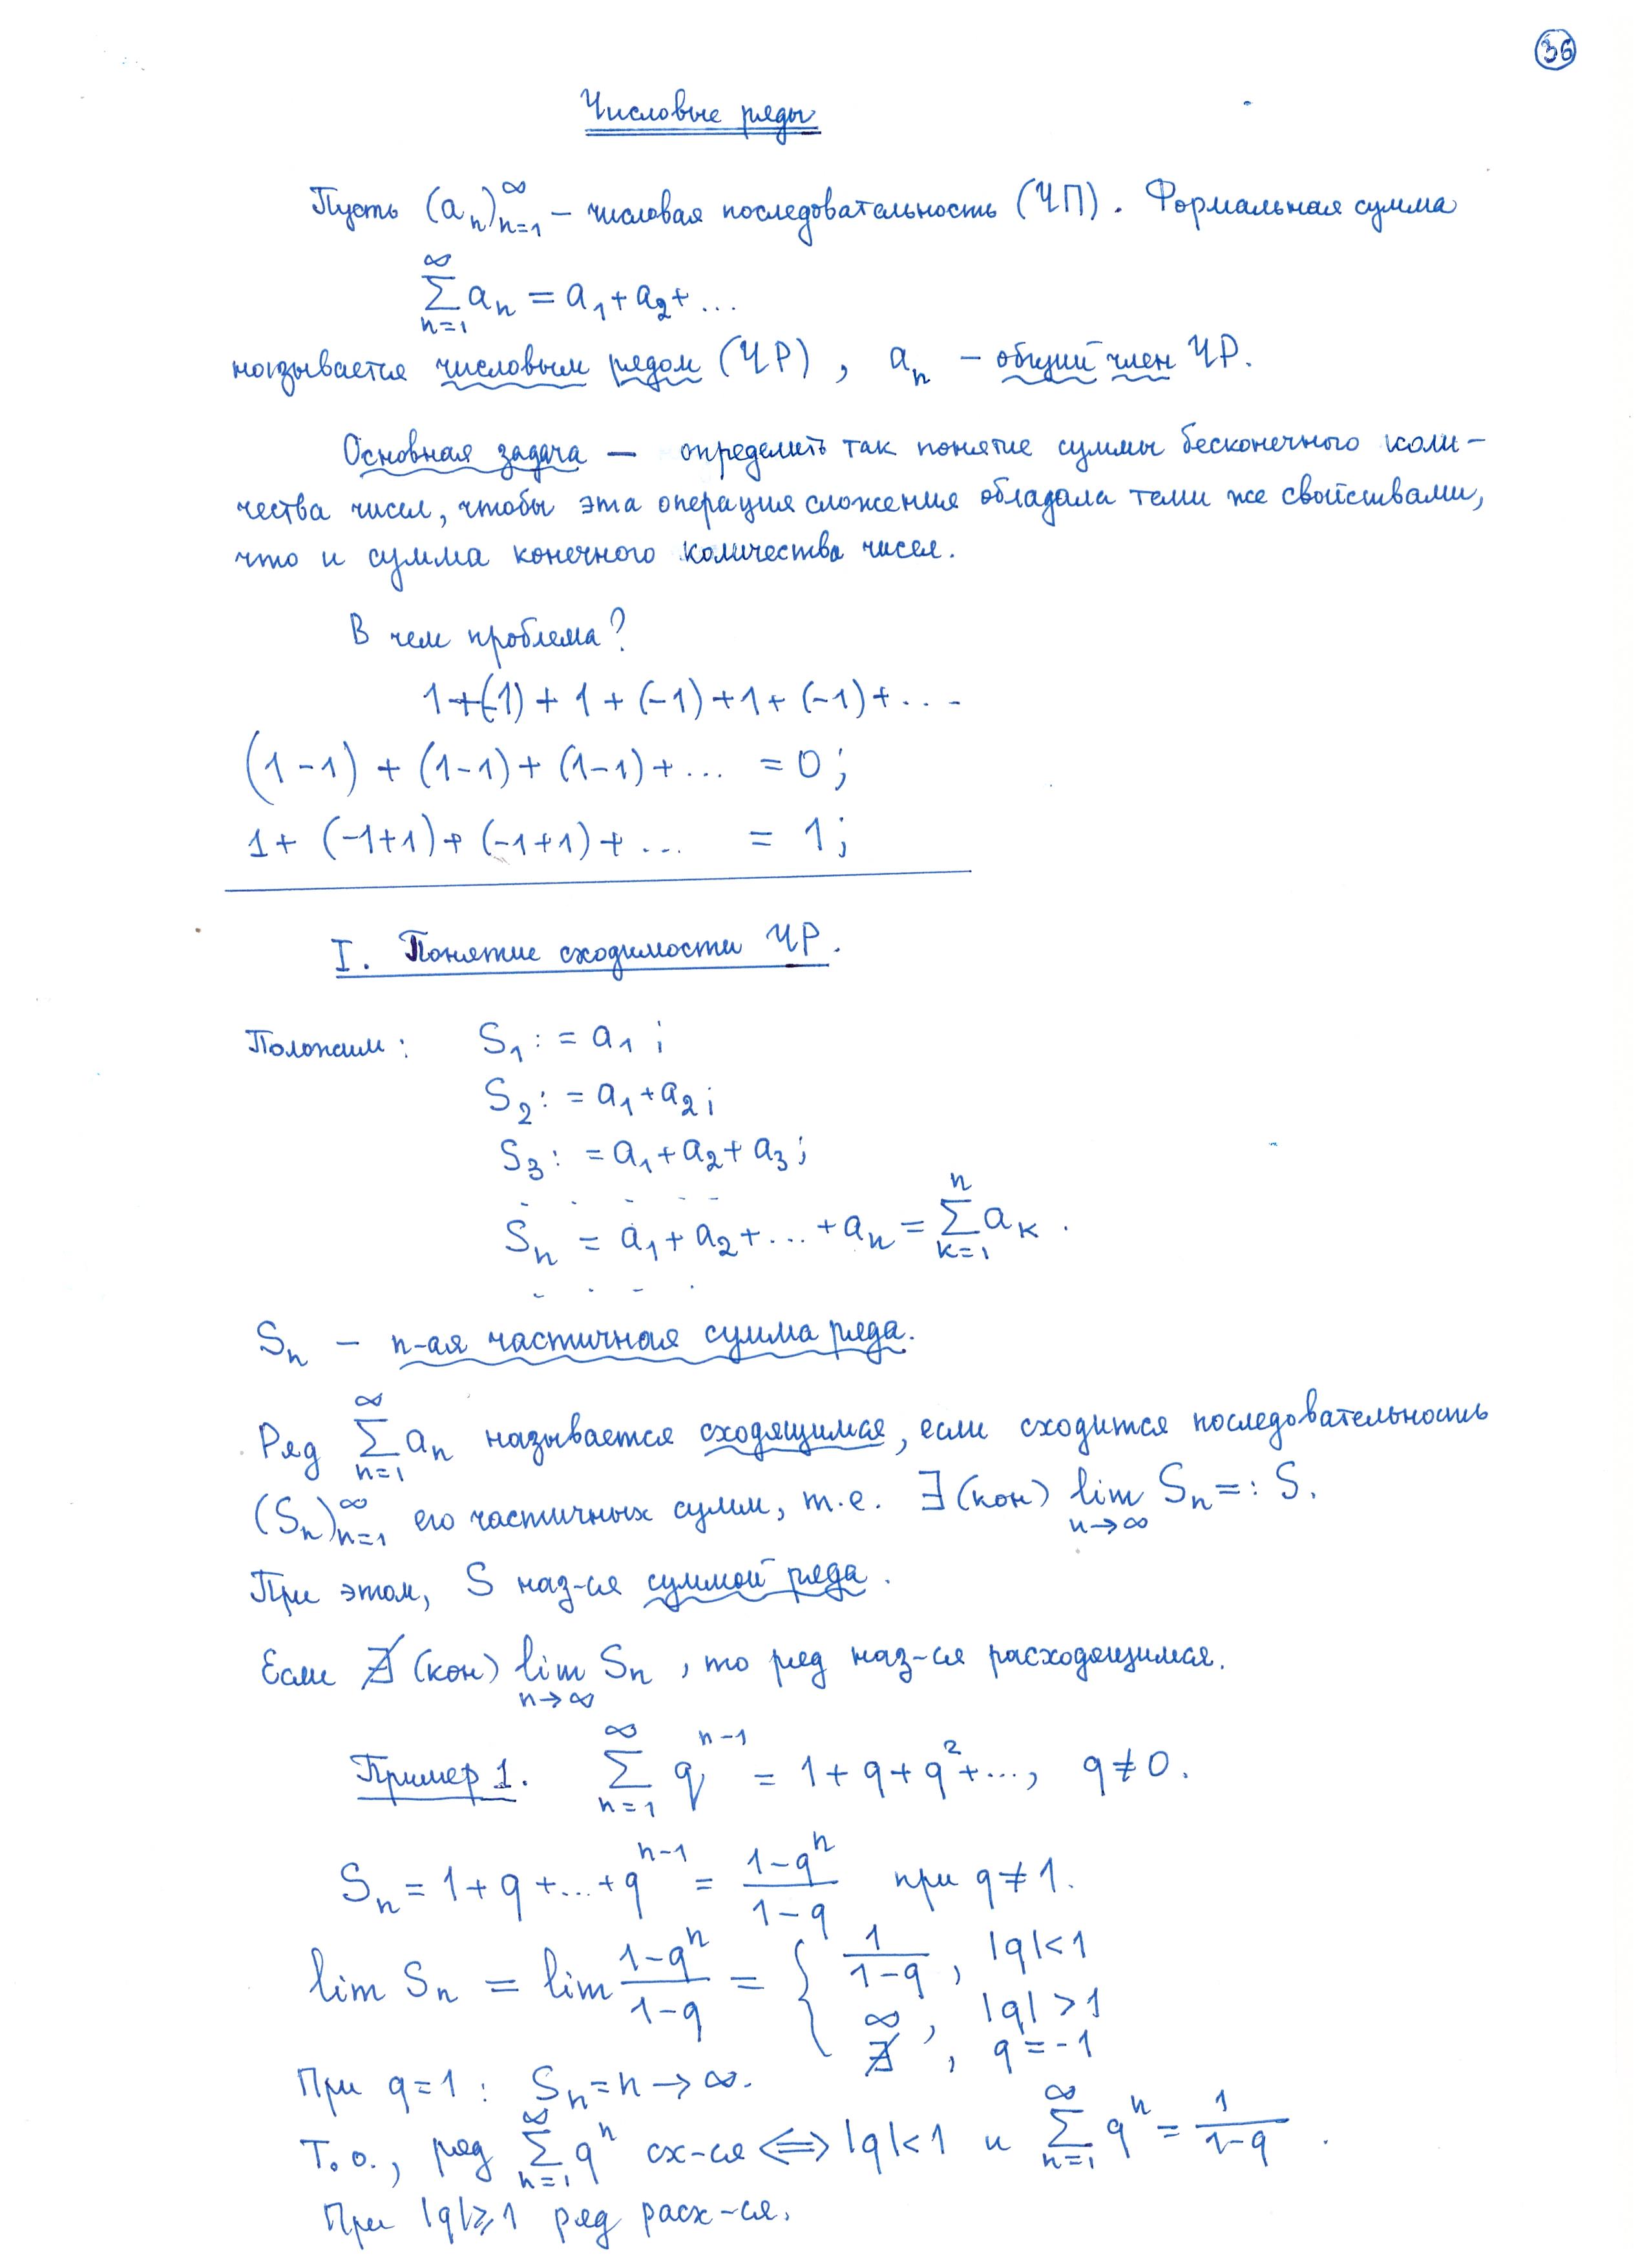 36
Числовые ряды
Пусть (aₙ)ₙ₌₁^∞ – числовая последовательность (ЧП). Формальная сумма
∑ₙ₌₁^∞ aₙ = a₁ + a₂ + ...
называется числовым рядом (ЧР), aₙ – общий член ЧР.
Основная задача — определить так понятие суммы бесконечного коли-
чества чисел, чтобы эта операция сложения обладала теми же свойствами,
что и сумма конечного количества чисел.
В чем проблема?
1+(-1) + 1 + (-1) + 1 + (-1) + ...
(1-1) + (1-1) + (1-1) + ... = 0;
1 + (-1+1) + (-1+1) + ... = 1;
I. Понятие сходимости ЧР.
Положим: S₁ := a₁;
S₂ := a₁ + a₂;
S₃ := a₁ + a₂ + a₃;
. . . . .
Sₙ = a₁ + a₂ + ... + aₙ = ∑ₖ₌₁^n aₖ.
. . . .
Sₙ – n-ая частичная сумма ряда.
Ряд ∑ₙ₌₁^∞ aₙ называется сходящимся, если сходится последовательность
(Sₙ)ₙ₌₁^∞ его частичных сумм, т.е. ∃ (кон) lim_{n→∞} Sₙ =: S.
При этом, S наз-ся суммой ряда.
Если ∄ (кон) lim_{n→∞} Sₙ, то ряд наз-ся расходящимся.
Пример 1. ∑ₙ₌₁^∞ q^{n-1} = 1 + q + q² + ..., q ≠ 0.
Sₙ = 1 + q + ... + q^{n-1} = (1-qⁿ)/(1-q) при q ≠ 1.
lim Sₙ = lim (1-qⁿ)/(1-q) = { 1/(1-q), |q| < 1
∞, |q| > 1
∄, q = -1
При q = 1: Sₙ = n → ∞.
Т.о., ряд ∑ₙ₌₁^∞ qⁿ сх-ся ⟺ |q| < 1 и ∑ₙ₌₁^∞ qⁿ = 1/(1-q).
При |q| ⩾ 1 ряд расх-ся.